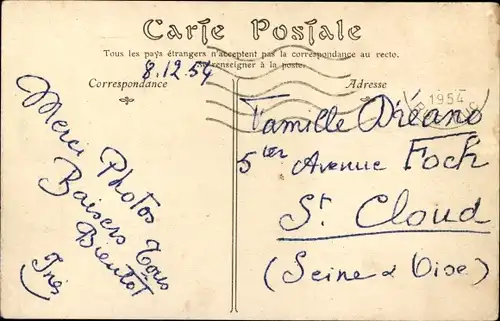 Carte Postale
Tous les pays étrangers n'acceptent pas la correspondance au recto.
Se renseigner à la poste.
8.12.54
Correspondance
Adresse
Merci Photos
Baisers Tous
Bientôt
Inès
1954
Famille Dréano
5 ter Avenue Foch
St Cloud
(Seine & Oise)